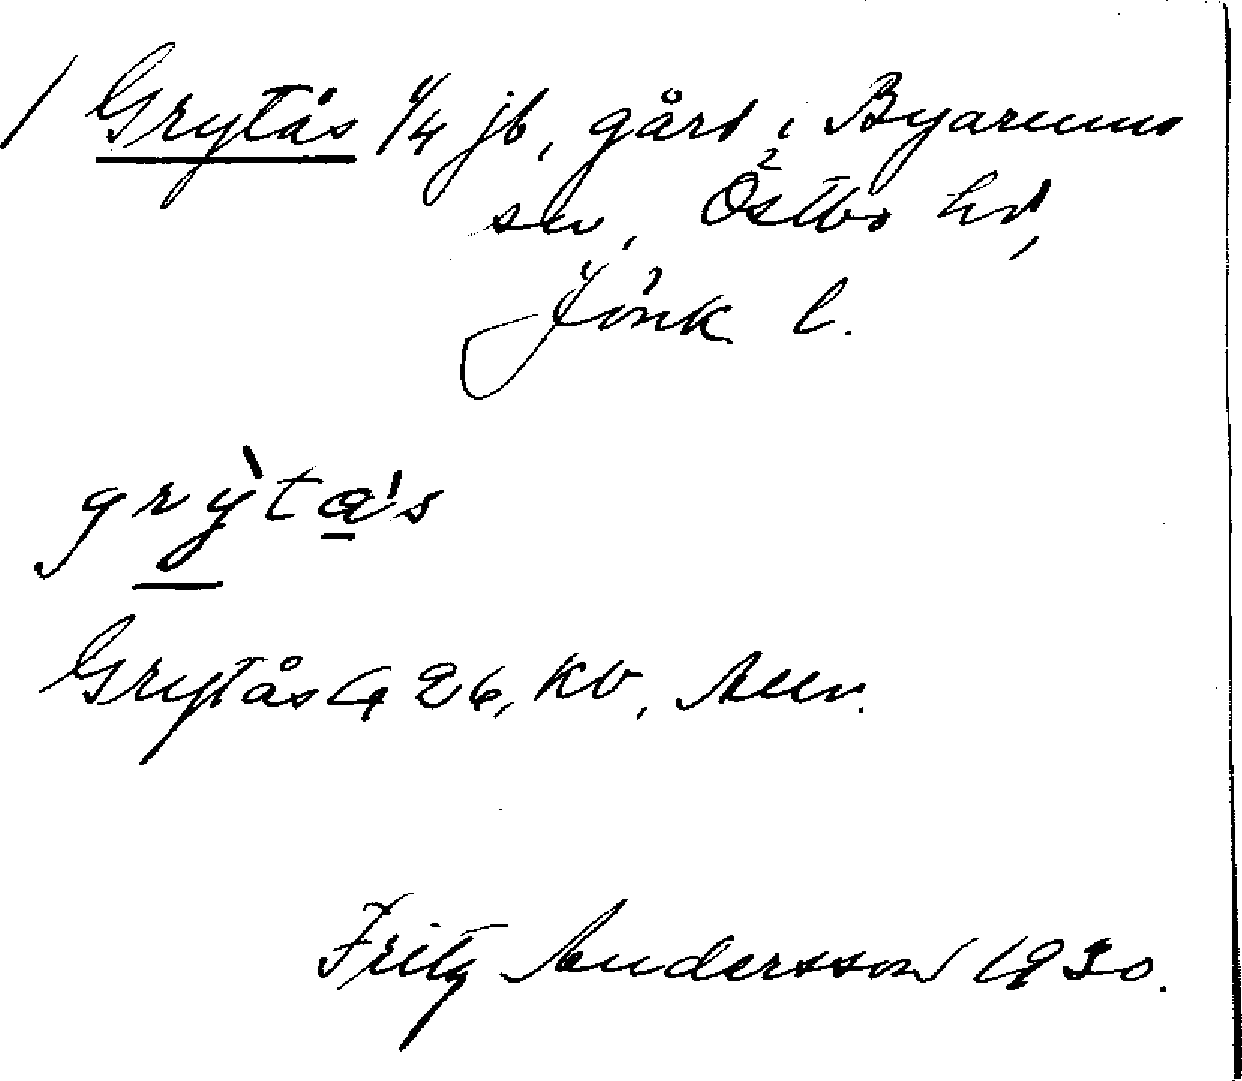 / Grytås 1/4 jb, gård i Byarums
sn, Östbo hd,
Jönk l.
grỳta's
Grytås G 26, KB,
Fritz Andersson 1930.